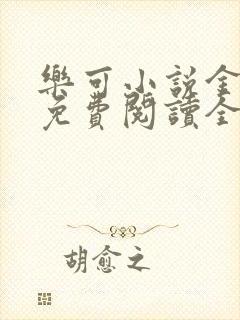 樂可小說全
免費閱讀全
胡愈之